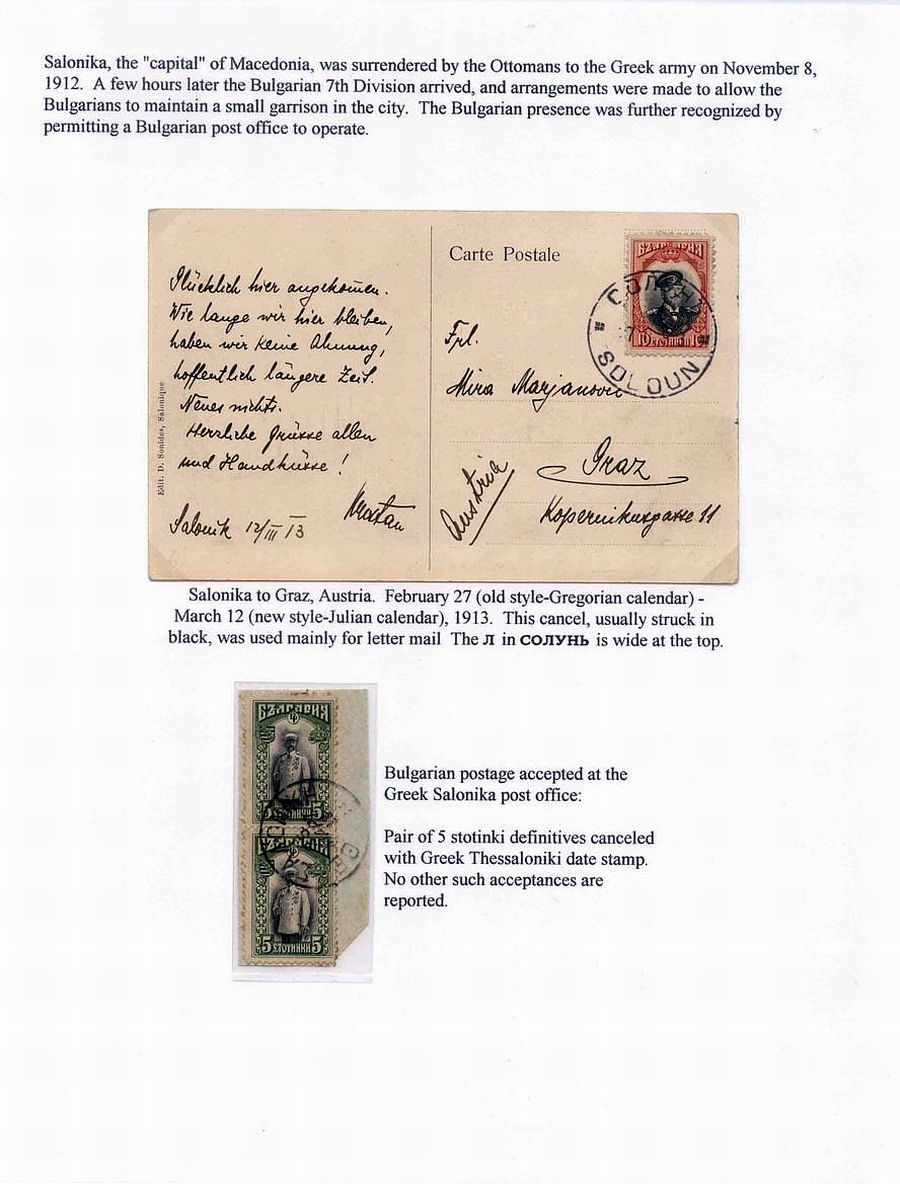 Salonika, the "capital" of Macedonia, was surrendered by the Ottomans to the Greek army on November 8,
1912. A few hours later the Bulgarian 7th Division arrived, and arrangements were made to allow the
Bulgarians to maintain a small garrison in the city. The Bulgarian presence was further recognized by
permitting a Bulgarian post office to operate.
Glücklich hier angekommen.
Wie lange wir hier bleiben,
haben wir keine Ahnung,
hoffentlich längere Zeit.
Neues nichts.
Herzliche Grüsse allen
und Handküsse!
Salonik 12/III 13
Edit. D. Sonides, Salonique
Carte Postale
БЪЛГАРИЯ
10 СТОТИНКИ 10
SOLOUN
Frl.
Mira Marjanović
Graz
Austria
Kopernikusgasse 11
Salonika to Graz, Austria. February 27 (old style-Gregorian calendar) -
March 12 (new style-Julian calendar), 1913. This cancel, usually struck in
black, was used mainly for letter mail The Л in СОЛУНЬ is wide at the top.
БЪЛГАРИЯ
5 СТОТИНКИ 5
БЪЛГАРИЯ
5 СТОТИНКИ 5
Bulgarian postage accepted at the
Greek Salonika post office:
Pair of 5 stotinki definitives canceled
with Greek Thessaloniki date stamp.
No other such acceptances are
reported.